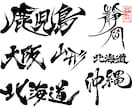 鹿児島
静岡
大阪
山形
北海道
北海道
沖縄